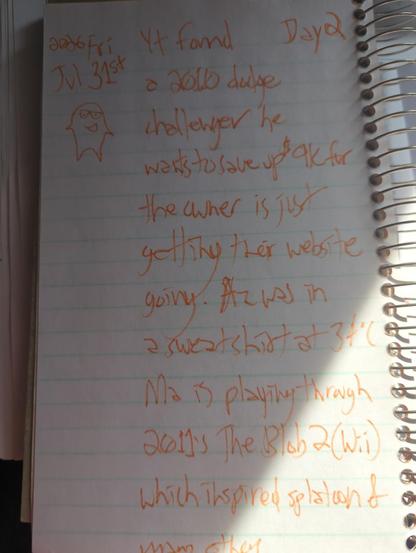 2026 Fri Yt found Day 2
Jul 31st a 2010 dodge
challenger he
wants to save up $9k for
the owner is just
getting their website
going. Az was in
a sweatshirt at 34°C
Ma is playing through
2011's The Blob 2 (Wii)
which inspired splatoon &
many other